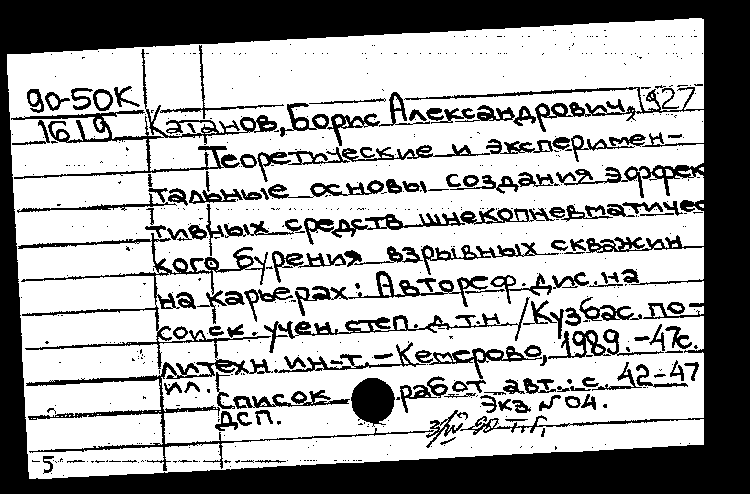 90-50К
1619
Катанов, Борис Александрович, 1927
Теоретические и эксперимен-
тальные основы создания эффек
тивных средств шнекопневматичес
кого бурения взрывных скважин
на карьерах: Автореф. дис. на
соиск. учен. степ. д.т.н /Кузбас. по-
литехн. ин-т. - Кемерово, 1989. - 47с.
ил.
Список работ авт.: с. 42-47
ДСП. Экз № 04.
5